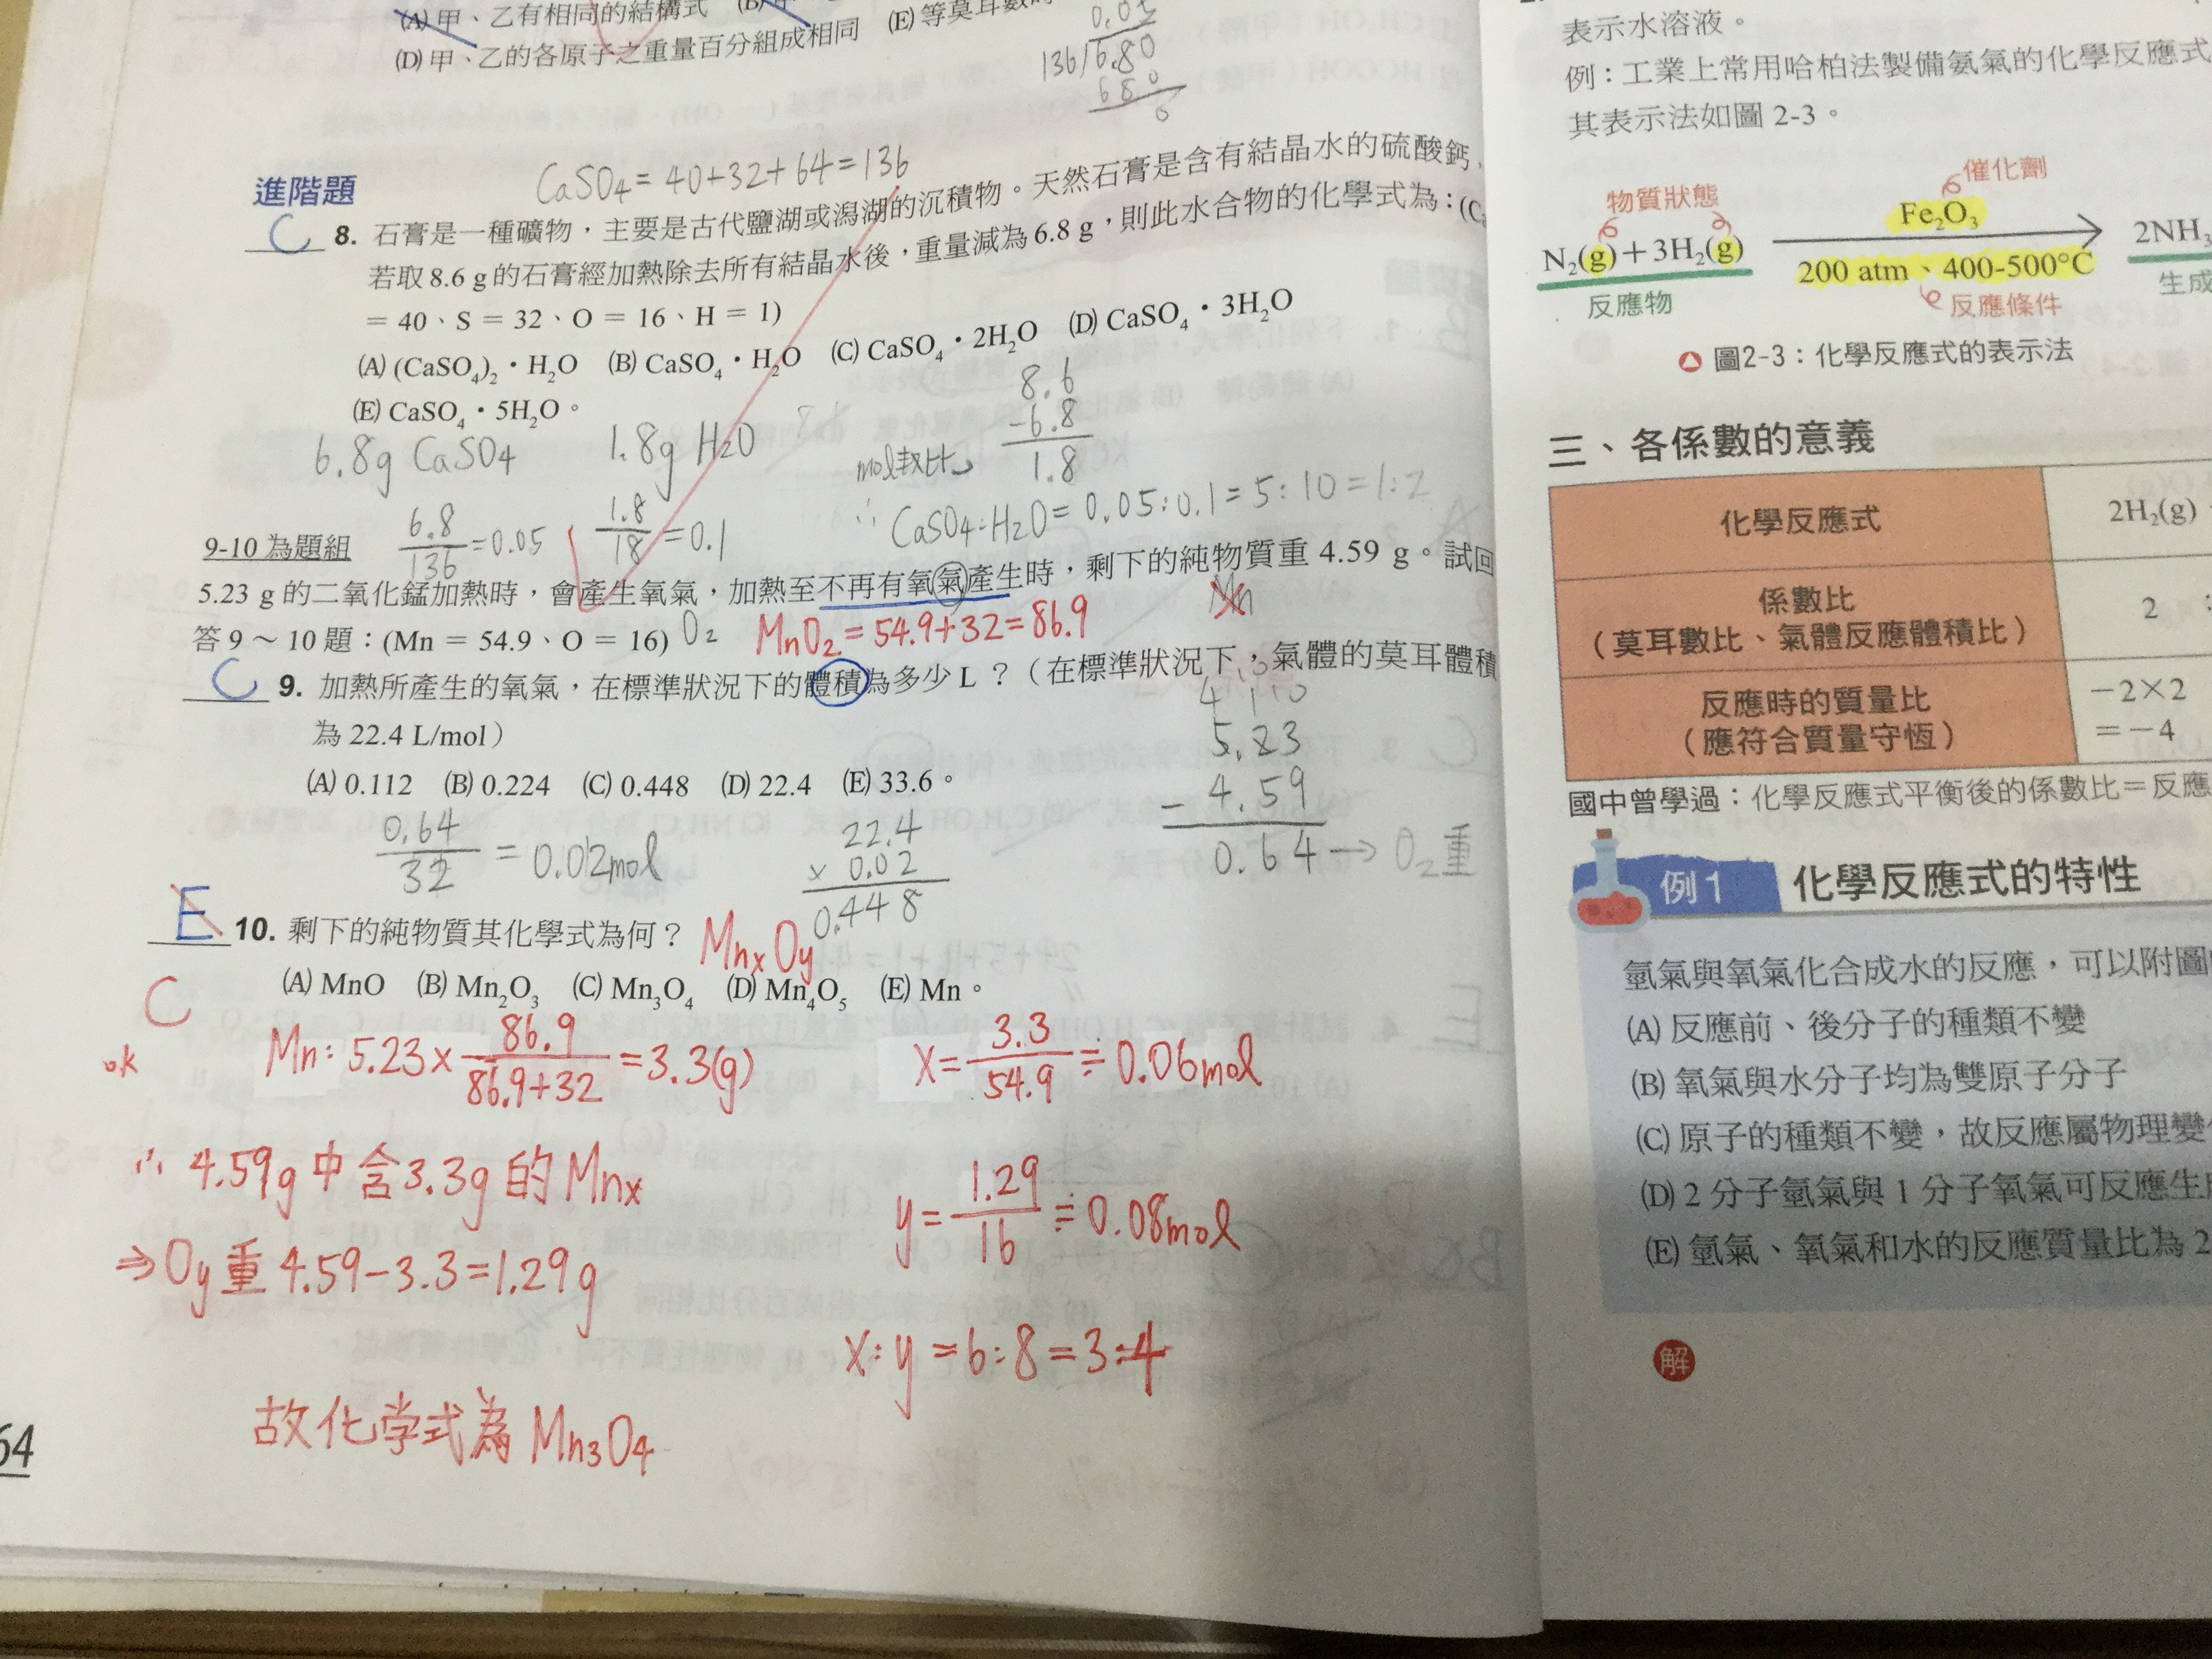 (A) 甲、乙有相同的結構式 (B)
(D) 甲、乙的各原子之重量百分組成相同 (E) 等莫耳數時
0.05
136/6.80
680
0
CaSO4 = 40+32+64=136
進階題
C 8. 石膏是一種礦物，主要是古代鹽湖或潟湖的沉積物。天然石膏是含有結晶水的硫酸鈣，
若取 8.6 g 的石膏經加熱除去所有結晶水後，重量減為 6.8 g，則此水合物的化學式為：(Ca
= 40、S = 32、O = 16、H = 1)
(A) (CaSO₄)₂・H₂O (B) CaSO₄・H₂O (C) CaSO₄・2H₂O (D) CaSO₄・3H₂O
(E) CaSO₄・5H₂O。
8.6
-6.8
1.8
6.8g CaSO4 1.8g H2O
mol數比
6.8/136=0.05 1.8/18=0.1
∴ CaSO4:H2O=0.05:0.1=5:10=1:2
9-10 為題組
5.23 g 的二氧化錳加熱時，會產生氧氣，加熱至不再有氧氣產生時，剩下的純物質重 4.59 g。試回
Mn
答 9～10 題：(Mn = 54.9、O = 16) O2 MnO2=54.9+32=86.9
C 9. 加熱所產生的氧氣，在標準狀況下的體積為多少 L？（在標準狀況下，氣體的莫耳體積
為 22.4 L/mol）
(A) 0.112 (B) 0.224 (C) 0.448 (D) 22.4 (E) 33.6。
5.23
- 4.59
0.64→O2重
0.64/32 = 0.02mol
22.4
x 0.02
0.448
E 10. 剩下的純物質其化學式為何？ MnxOy
C (A) MnO (B) Mn₂O₃ (C) Mn₃O₄ (D) Mn₄O₅ (E) Mn。
ok Mn: 5.23× 86.9/86.9+32 =3.3(g)
X= 3.3/54.9 ≒0.06mol
∴ 4.59g中含3.3g的Mnx
y= 1.29/16 ≒0.08mol
⇒Oy重 4.59-3.3=1.29g
x:y=6:8=3:4
故化学式為 Mn3O4
64
表示水溶液。
例：工業上常用哈柏法製備氨氣的化學反應式
其表示法如圖 2-3。
物質狀態 催化劑
N₂(g)+3H₂(g) Fe₂O₃ 2NH₃
200 atm、400-500°C
反應物 反應條件 生成
圖2-3：化學反應式的表示法
三、各係數的意義
化學反應式 2H₂(g)
係數比
（莫耳數比、氣體反應體積比） 2 :
反應時的質量比 −2×2
（應符合質量守恆） =−4
國中曾學過：化學反應式平衡後的係數比＝反應
例1 化學反應式的特性
氫氣與氧氣化合成水的反應，可以附圖
(A) 反應前、後分子的種類不變
(B) 氧氣與水分子均為雙原子分子
(C) 原子的種類不變，故反應屬物理變
(D) 2 分子氫氣與 1 分子氧氣可反應生
(E) 氫氣、氧氣和水的反應質量比為 2
解